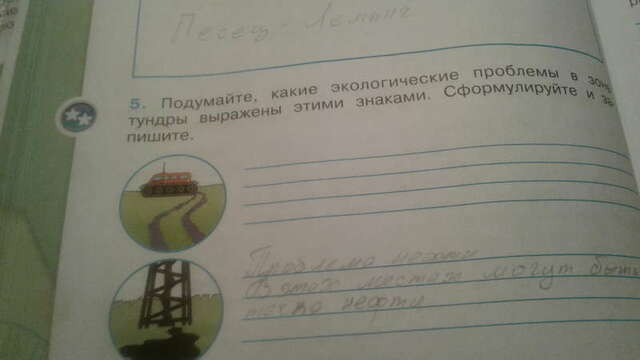 Песец - Лемминг
5. Подумайте, какие экологические проблемы в зоне
тундры выражены этими знаками. Сформулируйте и за-
пишите.
Проблема нефти
В этих местах могут быть
нефти